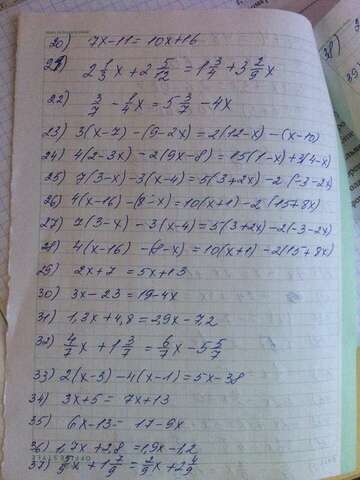 20) 7x-11=10x+16
21) 2 1/3 x + 2 5/12 = 1 3/4 + 3 2/9 x
22) 3/7 - 1/4 x = 5 3/7 - 4x
23) 3(x-7)-(9-2x)=2(12-x)-(x-10)
24) 4(2-3x)-2(9x-8)=15(1-x)+3(4-x)
25) 7(3-x)-3(x-4)=5(3+2x)-2(-3-2x)
26) 4(x-16)-(9-x)=10(x+1)-2(15+8x)
27) 7(3-x)-3(x-4)=5(3+2x)-2(-3-2x)
28) 4(x-16)-(9-x)=10(x+1)-2(15+8x)
29) 2x+7=5x+13
30) 3x-23=19-4x
31) 1,3x+4,8=2,9x-7,2
32) 4/7 x + 1 3/7 = 6/7 x - 5 5/7
33) 2(x-3)-4(x-1)=5x-38
34) 3x+5=7x+13
35) 6x-13=17-9x
36) 1,7x+2,8=1,9x-1,2
37) 5/9 x + 1 7/9 = 7/9 x + 2 4/9
38)